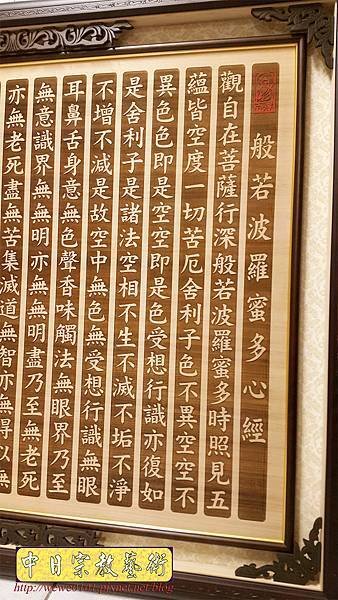 般若波羅蜜多心經
觀自在菩薩行深般若波羅蜜多時照見五
蘊皆空度一切苦厄舍利子色不異空空不
異色色即是空空即是色受想行識亦復如
是舍利子是諸法空相不生不滅不垢不淨
不增不減是故空中無色無受想行識無眼
耳鼻舌身意無色聲香味觸法無眼界乃至
無意識界無無明亦無無明盡乃至無老死
亦無老死盡無苦集滅道無智亦無得以無
中日宗教藝術